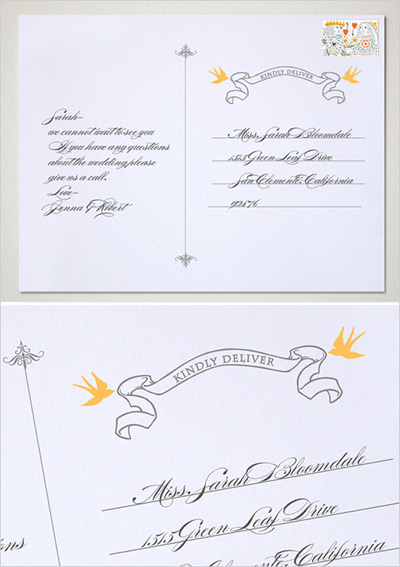 Sarah-
we cannot wait to see you
If you have any questions
about the wedding please
give us a call.
Love-
Jenna & Robert
KINDLY DELIVER
Miss. Sarah Bloomdale
1515 Green Leaf Drive
San Clemente, California
92876
KINDLY DELIVER
Miss. Sarah Bloomdale
1515 Green Leaf Drive
Clemente, California
ons